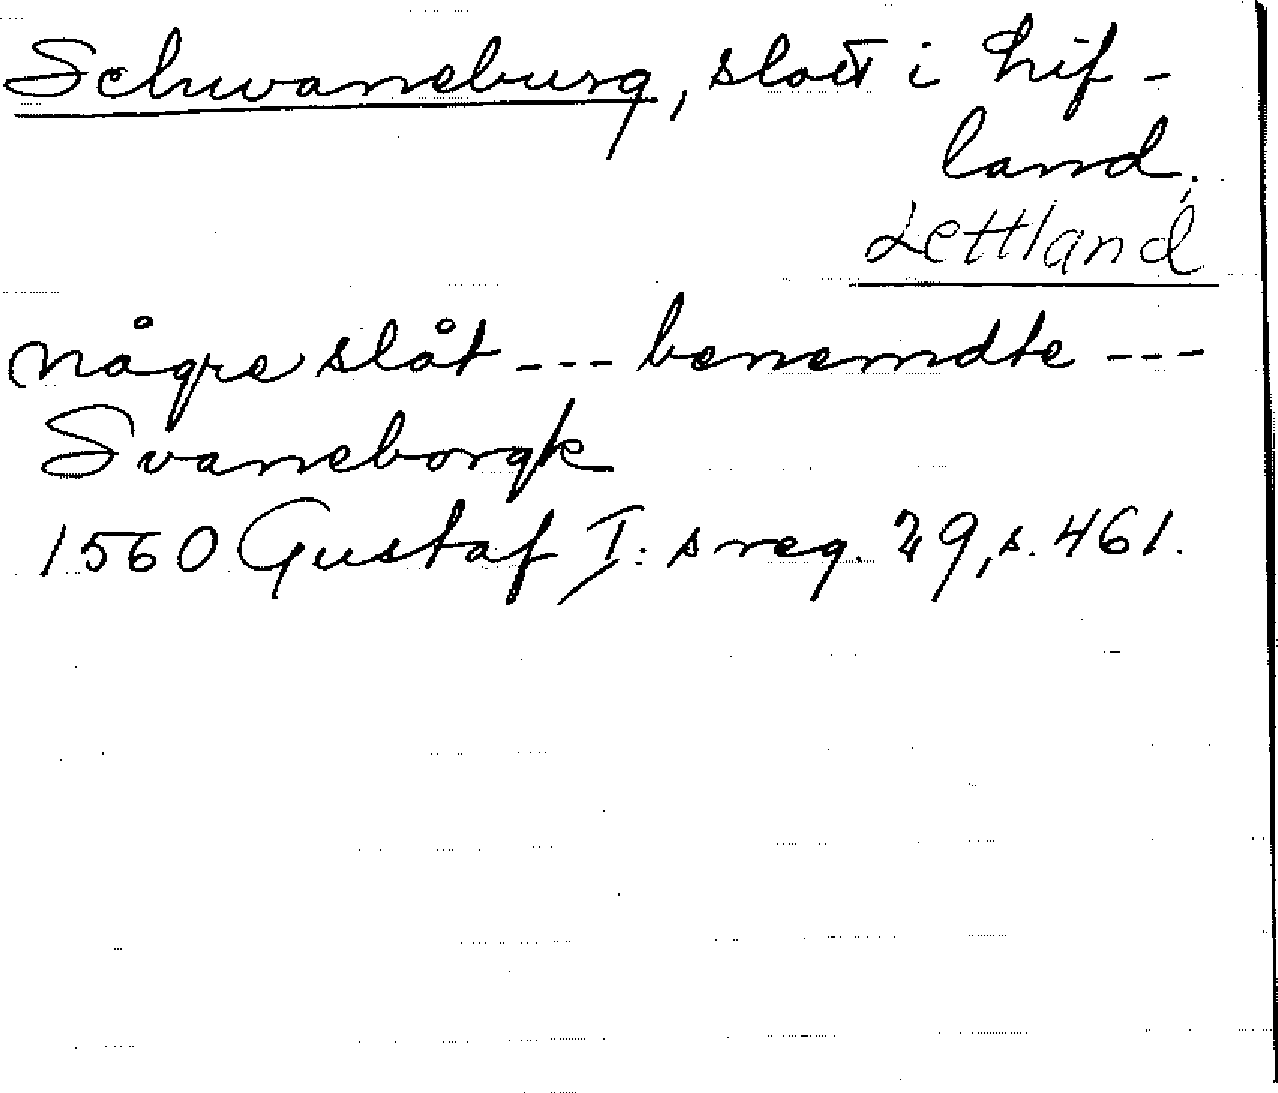 Schwaneburg, slott i Lif-
land,
Lettland
någre slåt --- benemdte ---
Svaneborgk
1560 Gustaf I:s reg. 29, s. 461.